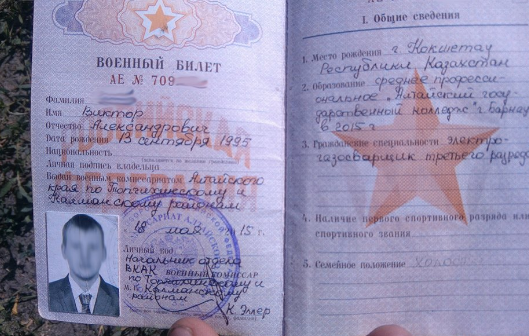 ВОЕННЫЙ БИЛЕТ
АЕ № 709
Фамилия
Имя Виктор
Отчество Александрович
Дата рождения 13 сентября 1995
Национальность
Личная подпись владельца
Выдан военным комиссариатом Алтайского
края по Топчихинскому и
Калманскому районам
18 мая 15 г.
Личный код
Начальник отдела
ВКАК ВОЕННЫЙ КОМИССАР
по Топчихинскому и
М. П. Калманскому
районам К. Эллер
I. Общие сведения
1. Место рождения г. Кокшетау
Республики Казахстан
2. Образование среднее професси-
ональное "Алтайский госу-
дарственный колледж" г. Барнау
в 2015 г
3. Гражданские специальности Электро-
газосварщик третьего разряда
4. Наличие первого спортивного разряда или
спортивного звания
5. Семейное положение